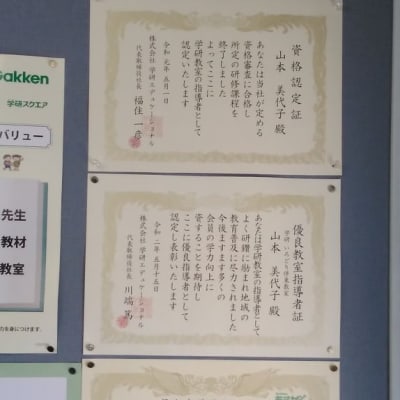 Gakken
学研スクエア
バリュー
先生
教材
教室
資格認定証
山本 美代子 殿
あなたは当社が定める
資格審査に合格し
所定の研修課程を
終了しました
よってここに
学研教室の指導者として
認定いたします
令和元年五月一日
株式会社 学研エデュケーショナル
代表取締役社長 福住 一彦
優良教室指導者証
学研 いろどり伴東教室
山本 美代子 殿
あなたは学研教室の指導者として
よく研鑽に励まれ地域の
教育普及に尽力されました
今後ますます多くの
会員の学力向上に
資することを期待し
ここに優良指導者として
認定し表彰いたします
令和二年五月十五日
株式会社 学研エデュケーショナル
代表取締役社長 川端 篤